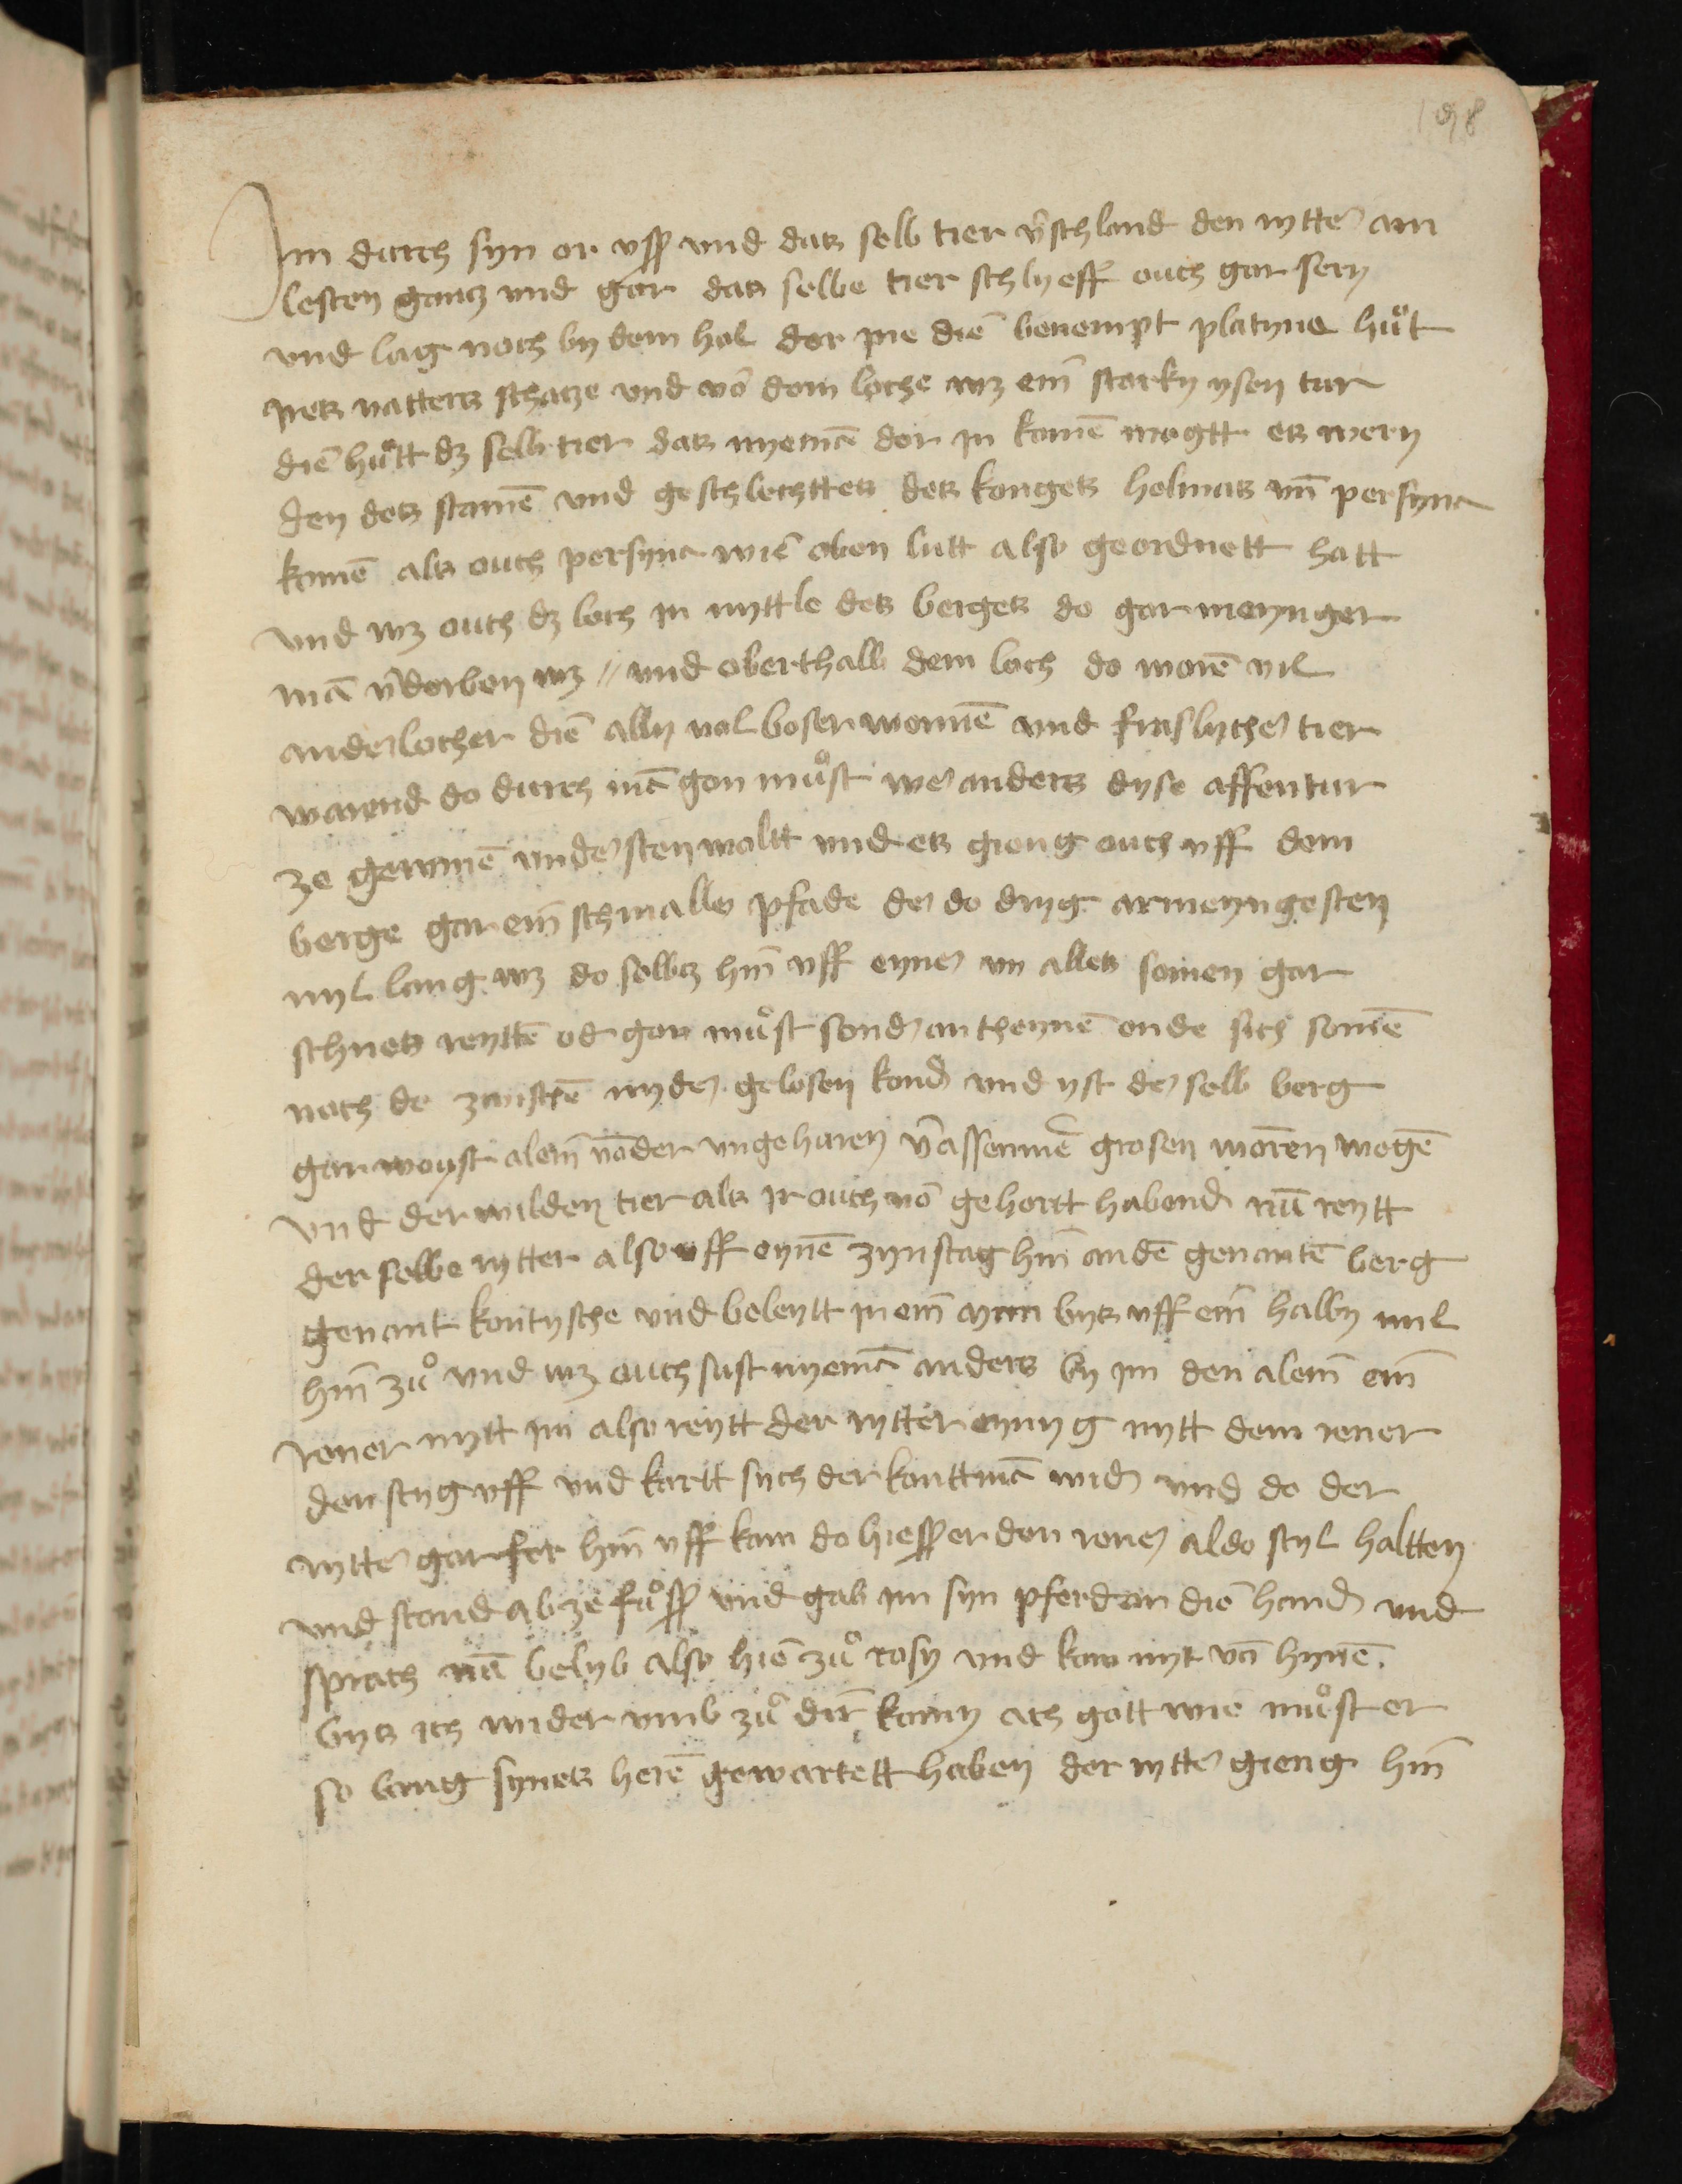 198
Im durch syn or vsß vnd das selb tier v̄schland den rytter am
lesten gantz vnd gar das selbe tier schlyeff ouch gar sery
vnd lag noch by dem hol dor jne die benempt platyne hu̍t
jres vatters schatze vnd vō dem loche wz ein̄ starky ysen tur
die hu̍tt dz selb tier das nyemā dor jn komē mogtt es wery
den des stamē vnd geschlechttes des konges helmas vn̄ persyna
komē als ouch persyna wie oben lutt also geordnett hatt
vnd wz ouch dz loch jn myttle des berges do gar menger
mā v̄dorben wz // vnd oberthalb dem loch do worē vil
ander locher die ally vol boser wormē vnd fraslycher tier
warend do durch mā gon mu̍st wer anders dyse affentur
ze gewinē vndersten woltt vnd es gieng ouch vff dem
berge gar ein̄ schmaller pfade der do dryg armeyngesten
myl lang wz do selbtz hin̄ vff eyner vn alles somen gar
schnels reyttē od gon mu̍st sonder an theynē ende sich somē
noch do zwischē nyder gelosen kond vnd yst der selb berg
gar woyst alein̄ vō der vngehuren v̄assenmē grosen worē wegē
vnd der wilden tier als jr ouch vō gehortt habend nū reytt
der selbe rytter also vff eynē zynstag hin̄ an dē genantē berg
genant kontysche vnd beleytt jn ein̄ man bys vff ein̄ halby mil
hin̄ zu̍ vnd wz ouch sust nyemā anders by jm den alein̄ ein̄
rener mytt jm also reytt der rytter eynyg mytt dem rener
den styg vff vnd kartt sych der konttmā wid vnd do der
rytter gar fer hin̄ vff kam do hiesß er den rener aldo styl haltten
vnd stand ab ze fu̍sß vnd gab jm syn pferd an die hand vnd
sprach nū belyb also hie zu̍ rosy vnd kom nyt vō hynē
bys ich wider vmb zu̍ dir komy ach gott wie mu̍st er
so lang synes herē gewartett haben der rytter gieng hin̄